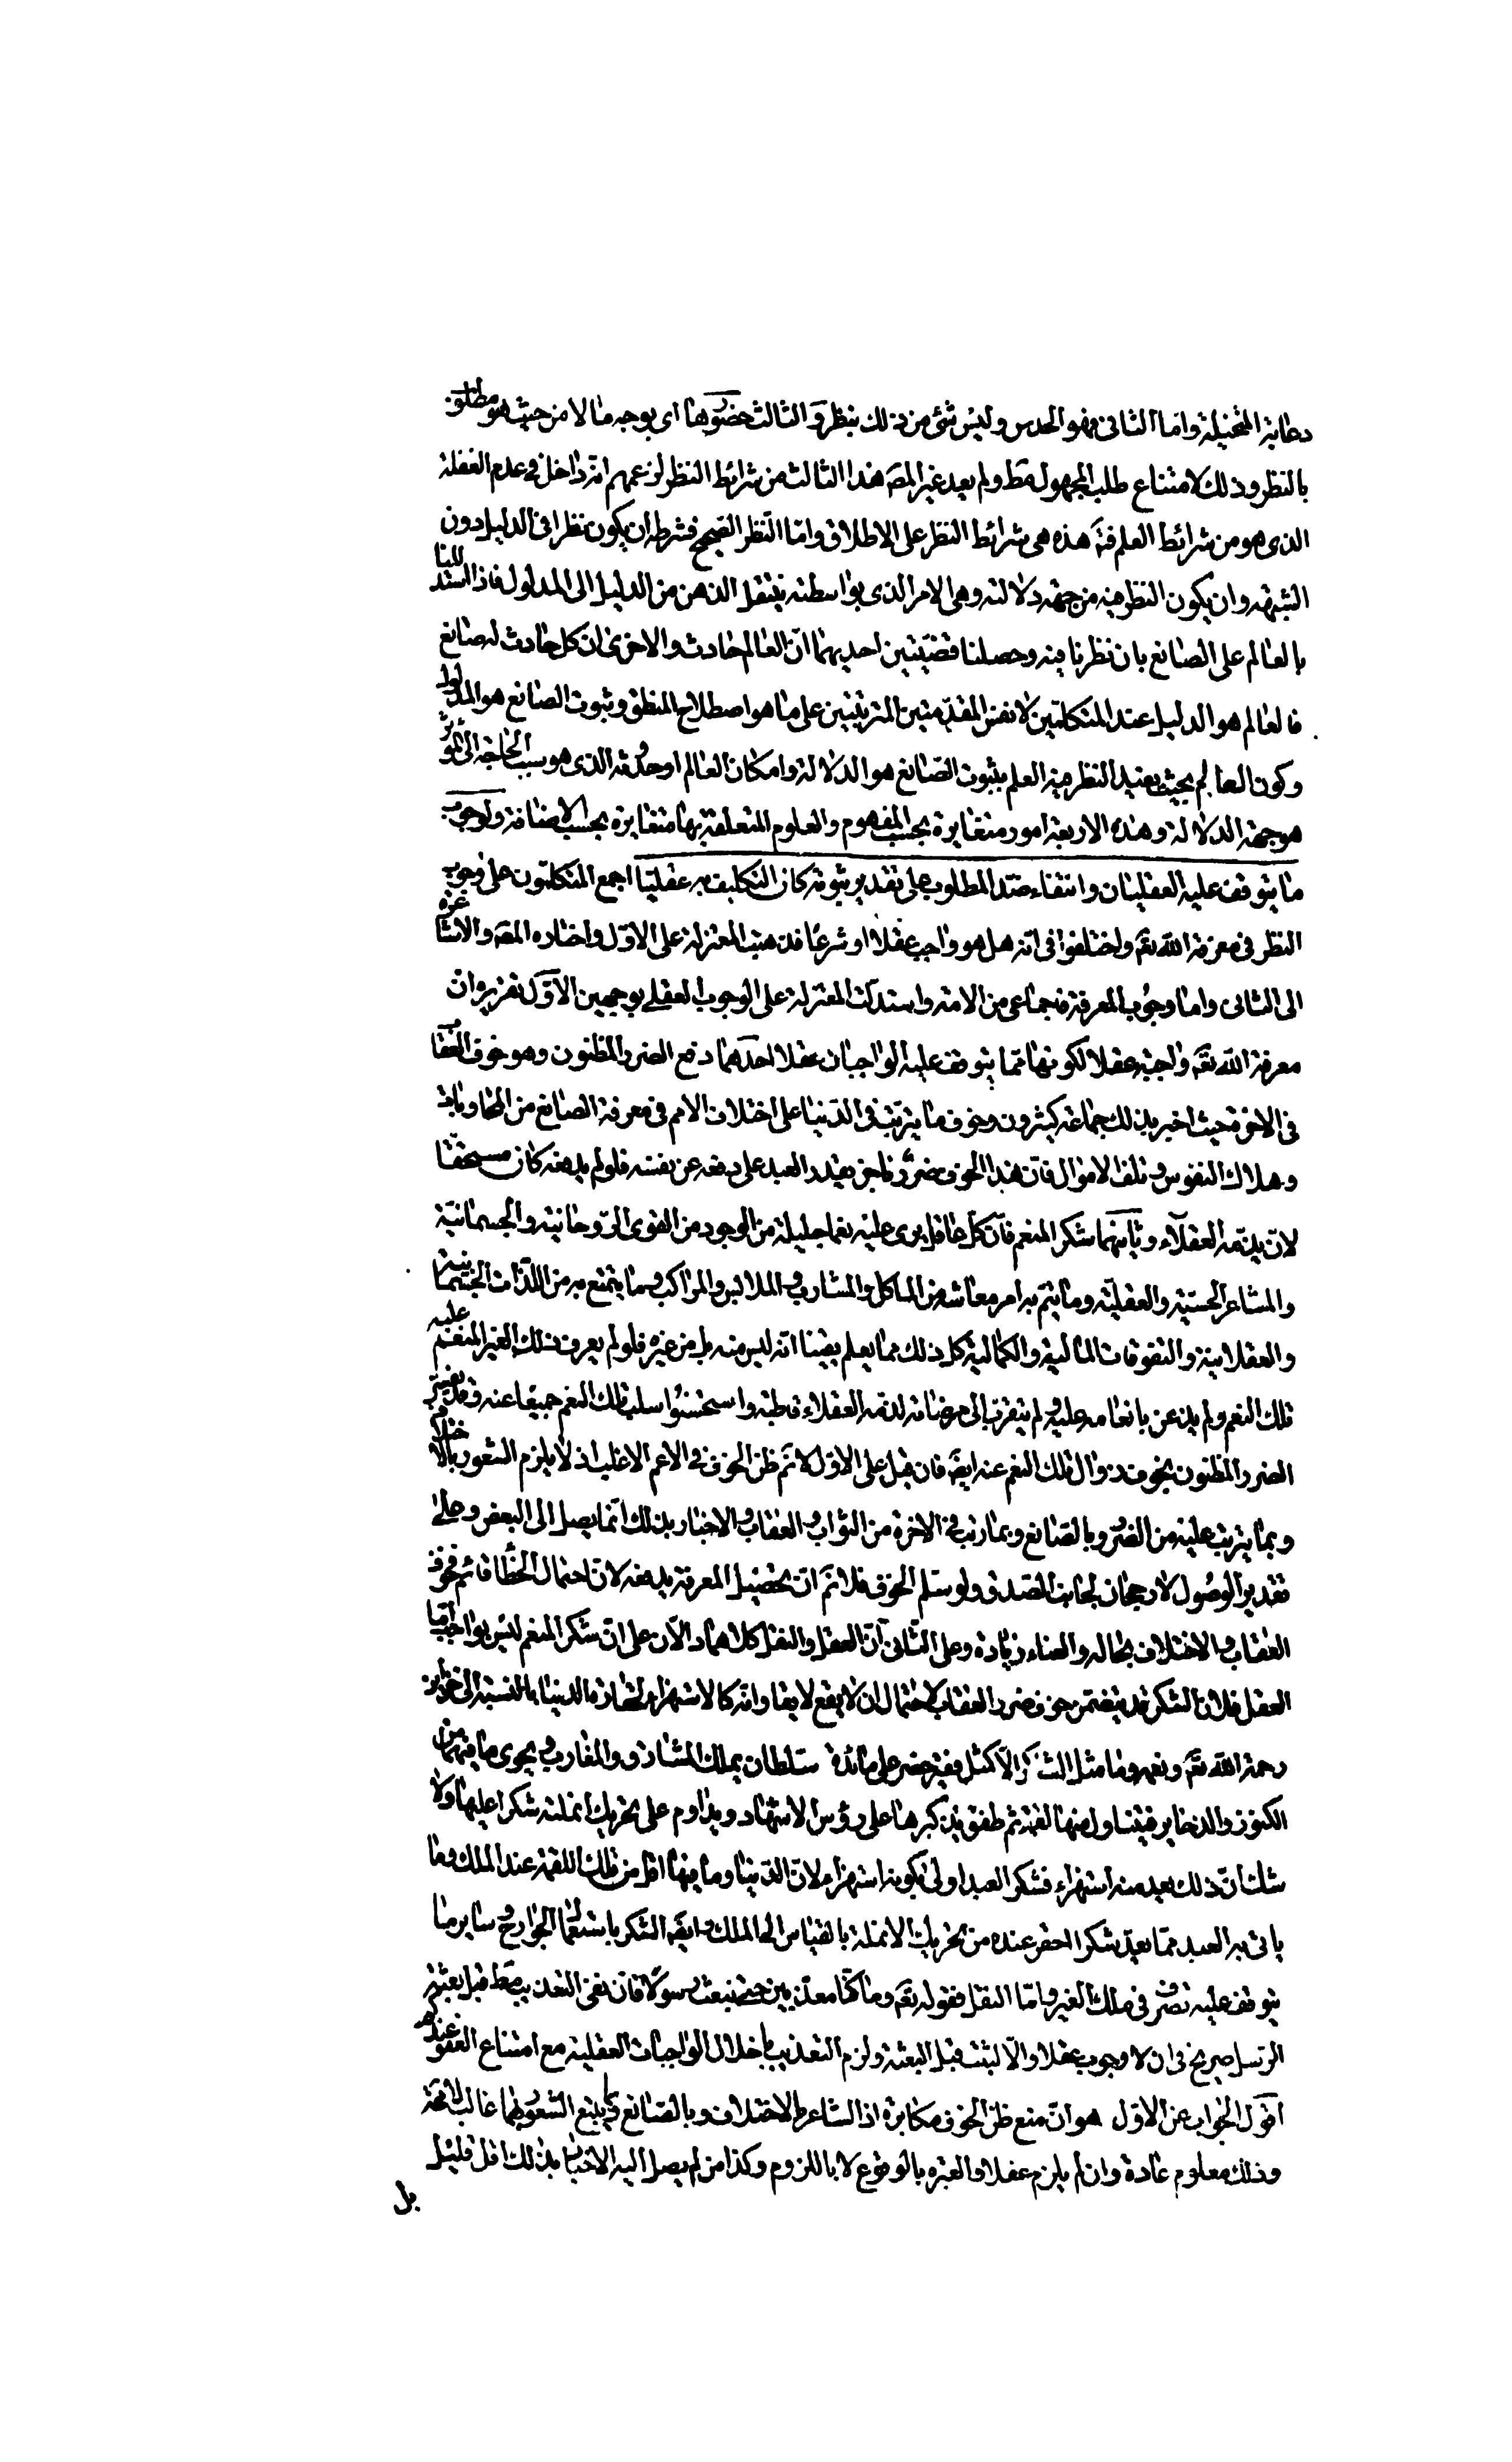 دعابة المتخيلة واما الثانى فهو الحدس وليس شئ من ذلك بنظر و الثالث حضورها اى بوجه ما لا من حيث هو مطلوب
بالنظر وذلك لامتناع طلب المجهول مط ولم يعد غير المصَ هذا الثالث من شرائط النظر لزعمهم انه داخل فى عدم الغفلة
الذى هو من شرائط العلم هذه هى شرائط النظر على الاطلاق واما النظر الصحيح فشرطه ان يكون نظرا فى الدليل دون
الشبهة وان يكون النظر فيه من جهة دلالته وهى الامر الذى بواسطته ينتقل الذهن من الدليل الى المدلول فاذا استدللنا
بالعالم على الصانع بان نظرنا فيه وحصلنا قضيتين احديهما انّ العالم حادث والاخرى ان كل حادث له صانع
فالعالم هو الدليل عند المتكلمين لا نفس المقدّمتين المترتبتين على ما هو اصطلاح المنطق وثبوت الصانع هو المدلول
وكون العالم بحيث يفيد النظر فيه العلم بثبوت الصّانع هو الدلالة وامكان العالم او حدوثه الذى هو سبب الحاجة الى المؤثر
هو جهة الدلالة وهذه الاربعة امور متغايرة بحسب المفهوم والعلوم المتعلقة بها متغايرة بحسب الاضافة ولوجوب
ما يتوقف عليه العقليتان وانتفاء ضدّ المطلوب على تقدير ثبوته كان التكليف به عقليّا اجمع المتكلمون على وجوب
النظر فى معرفة الله تعَ واختلفوا فى انه هل هو واجب عقلا او شرعا فذهب المعتزلة على الاوّل واختاره المصَ والاشاعرة
الى الثانى واما وجوب المعرفة فاجماعى من الامة واستدلت المعتزلة على الوجوب العقلى بوجهين الاوّل تقريره ان
معرفة الله تعَ واجبة عقلا لكونها ممّا يتوقف عليه الواجبان عقلا احدهما دفع الضرر المظنون وهو خوف العقاب
فى الاخرة حيث اخبر بذلك جماعة كثيرون وخوف ما يترتّب فى الدّنيا على اختلاف الامم فى معرفة الصانع من المحاربات
وهلاك النفوس وتلف الاموال فان هذا الخوف ضرر ناجز يقدر العبد على دفعه عن نفسه فلو لم يدفعه كان مستحقّا
لان يذمّه العقلاء وثانيهما شكر المنعم فانّ كل عاقل يرى عليه نعما جليلة من الوجود من القوى الرّوحانية والجسمانيّة
والمشاعر الحسّيّة والعقليّة وما يتم به امر معاشه من المآكل والمشارب والملابس والمراكب وما يتمتع به من اللذّات الجسمانية
والعقلانية والتفوقات المالية والكمالية كل ذلك مما يعلم يقينا انه ليس منه بل من غيره فلو لم يعرف ذلك الغير المنعم عليه
تلك النعم ولم يذعن بانعامه عليه ولم يتقرّب الى مرضاته لذمّه العقلاء قاطبة واستحسنوا سلب تلك النعم جميعا عنه وقد يفسّر
الضرر المظنون بخوف زوال تلك النعم عنه ايضَ فان قيل على الاوّل لا نمَ ظن الخوف فى الاعم الاغلب اذ لا يلزم الشعور بالاختلاف
وبما يترتب عليه من الضرر وبالصّانع وبما رتب فى الاخرة من الثواب والعقاب والاخبار بذلك انّما يصل الى البعض وعلى
تقدير الوصول لا رجحان لجانب الصدق ولو سلم الخوف فلا نمَ انّ تحصيل المعرفة يدفعه لان احتمال الخطأ قائم فخوف
العقاب والاختلاف بحاله والعناء زيادة وعلى الثّانى انّ العقل والنقل كلاهما دالّان على انّ شكر المنعم ليس بواجب اما
العقل فلان الشكر قد يتضمن خوف ضرر العقاب لاحتمال ان لا يقع لايقا وانّه كالاستهزاء لحقارة الدنيا بالنسبة الى خزاين
رحمة الله تعَ ونعمه وما مثل الشاكر الّا كمثل فقير حضر على مائدة سلطان يملك المشارق والمغارب ويحوى ما فيهما من
الكنوز والذخاير فيتناول منها لقمة ثم طفق يذكرها على رؤس الاشهاد ويداوم على تحريك انملته شكرا عليها ولا
شك ان ذلك يعد منه استهزاء فشكر العبد اولى بكونه استهزاء لان الدّنيا وما فيها اقل من تلك اللقمة عند الملك وما
ياتى به العبد ممّا يعدّ شكرا احقر عنده من تحريك الانملة بالقياس الى الملك وايضَ الشكر باستعمال الجوارح وساير ما
يتوقف عليه تصرف فى ملك الغير واما النقل فقوله تعَ وما كنّا معذّبين حتى نبعث رسولا فان نفى التعذيب مط قبل بعثة
الرسل صريح فى ان لا وجوب عقلا والّا لثبت قبل البعثة ولزم التعذيب باخلال الواجبات العقلية مع امتناع العفو عندهم
اقول الجواب عن الاوّل هو انّ منع ظن الخوف مكابرة اذ الشاعر بالاختلاف وبالصّانع يتبع الشعور بهما غالبا
وذلك معلوم عادة وان لم يلزم عقلا والعبرة بالوقوع لا باللزوم وكذا من لم يصل اليه الاخبار بذلك اقل قليل
بل